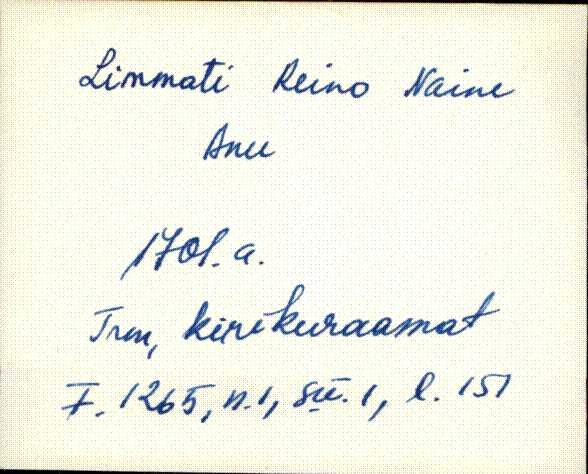 Limmati Reino Naine
Anu
1701. a.
Trm, kirikuraamat
F. 1265, n. 1, sü. 1, l. 151